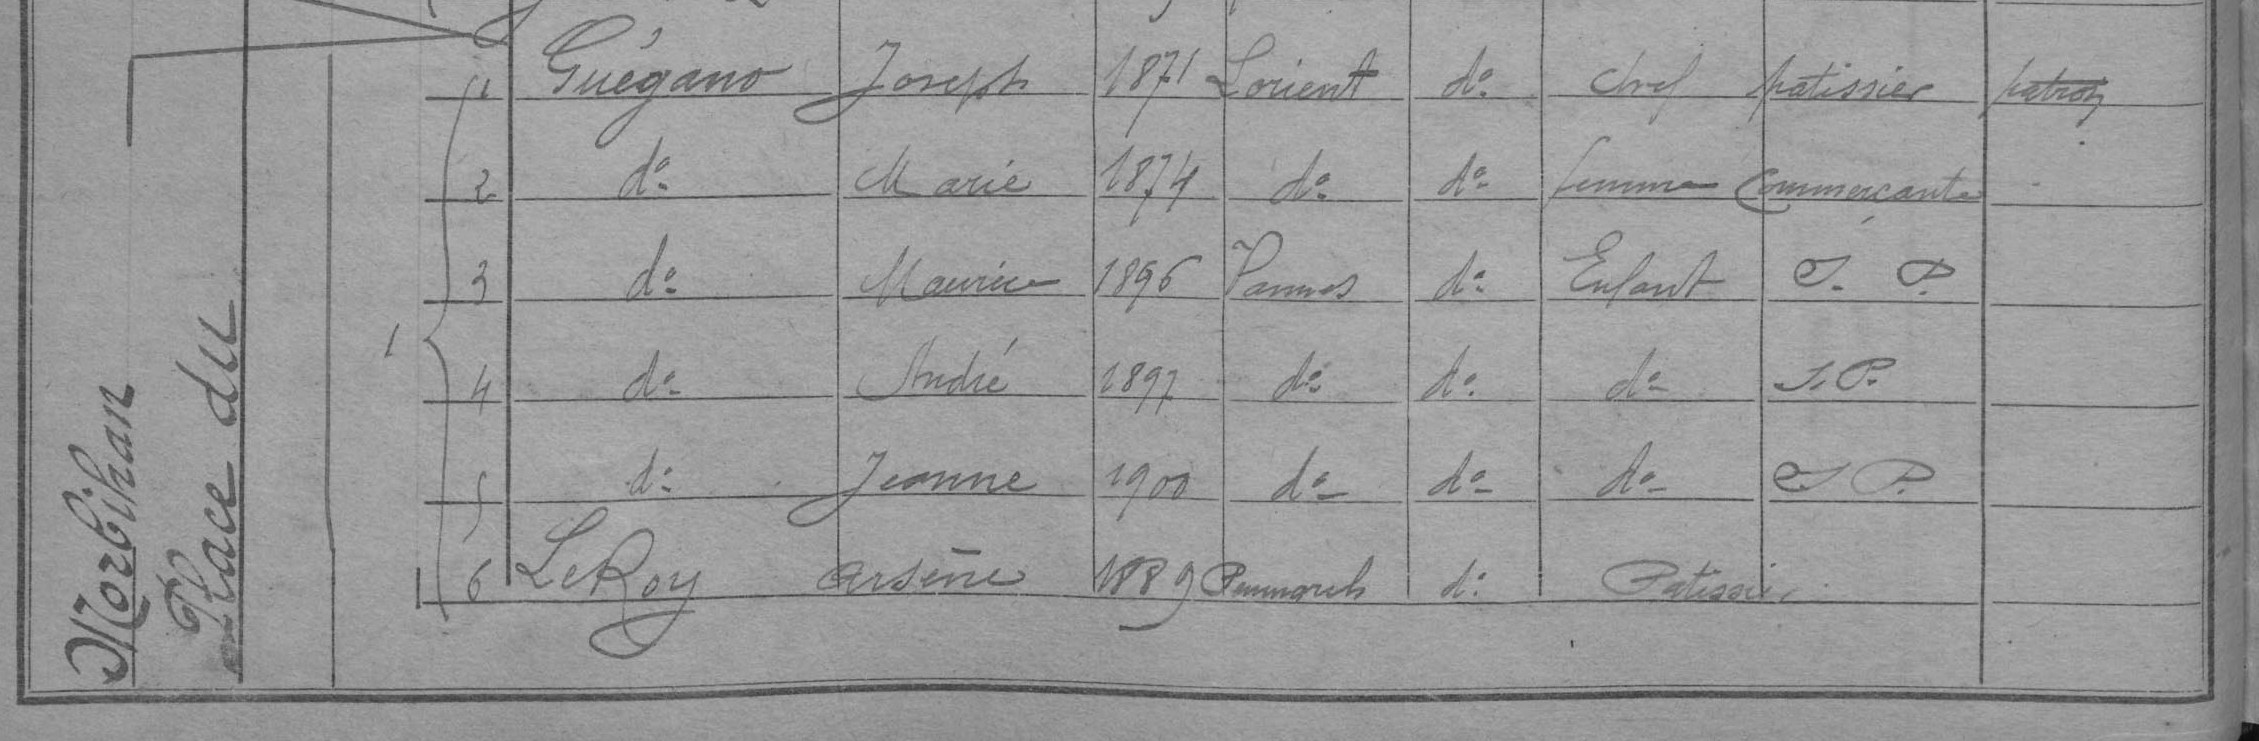 Place du
Morbihan
1
1 Guégano Joseph 1871 Lorient do chef patissier patron
2 do Marie 1874 do do femme Commerçante
3 do Maurice 1896 Vannes do Enfant S. P.
4 do André 1897 do do do S. P.
5 do Jeanne 1900 do do do S P.
6 Le Roy Arsène 1889 Penmarch do Patissier